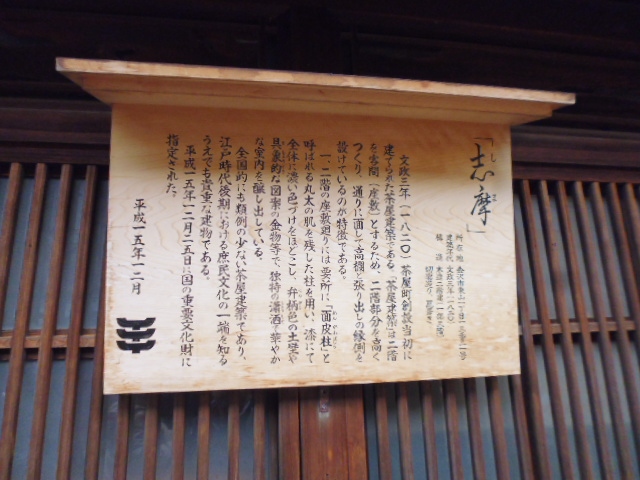 「志摩」
しま
所在地 金沢市東山一丁目一三番二一号
建築年代 文政三年(一八二〇)
構造 木造二階建(一部土蔵)
切妻造り 瓦葺き
文政三年(一八二〇)茶屋町創設当初に
建てられた茶屋建築である。「茶屋建築は二階
を客間(座敷)とするため、二階部分を高く
つくり、通りに面して高欄と張り出しの縁側を
設けているのが特徴である。
一、二階の座敷廻りには要所に「面皮柱」と
めんかわばしら
呼ばれる丸太の肌を残した柱を用い、漆にて
全体に濃い色づけをほどこし、弁柄色の土壁や
具象的な図案の金物等で、独特の瀟洒で華やか
な室内を醸し出している。
全国的にも類例の少ない茶屋建築であり、
江戸時代後期における庶民文化の一端を知る
うえでも貴重な建物である。
平成一五年一二月二五日に国の重要文化財に
指定された。
平成一五年一二月